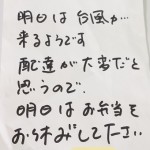 明日は台風が…
来るようです
配達が大変だと
思うので、
明日はお弁当を
お休みしてたさい